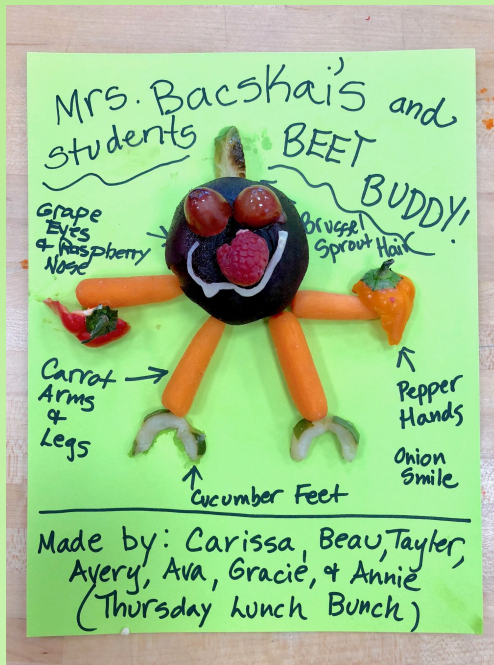 Mrs. Bacskai's and
students
BEET
BUDDY!
Grape
Eyes
& Raspberry
Nose
Brussel
Sprout Hair
Carrot
Arms
&
Legs
Pepper
Hands
Onion
Smile
Cucumber Feet
Made by: Carissa, Beau, Tayler,
Avery, Ava, Gracie, & Annie
(Thursday Lunch Bunch)